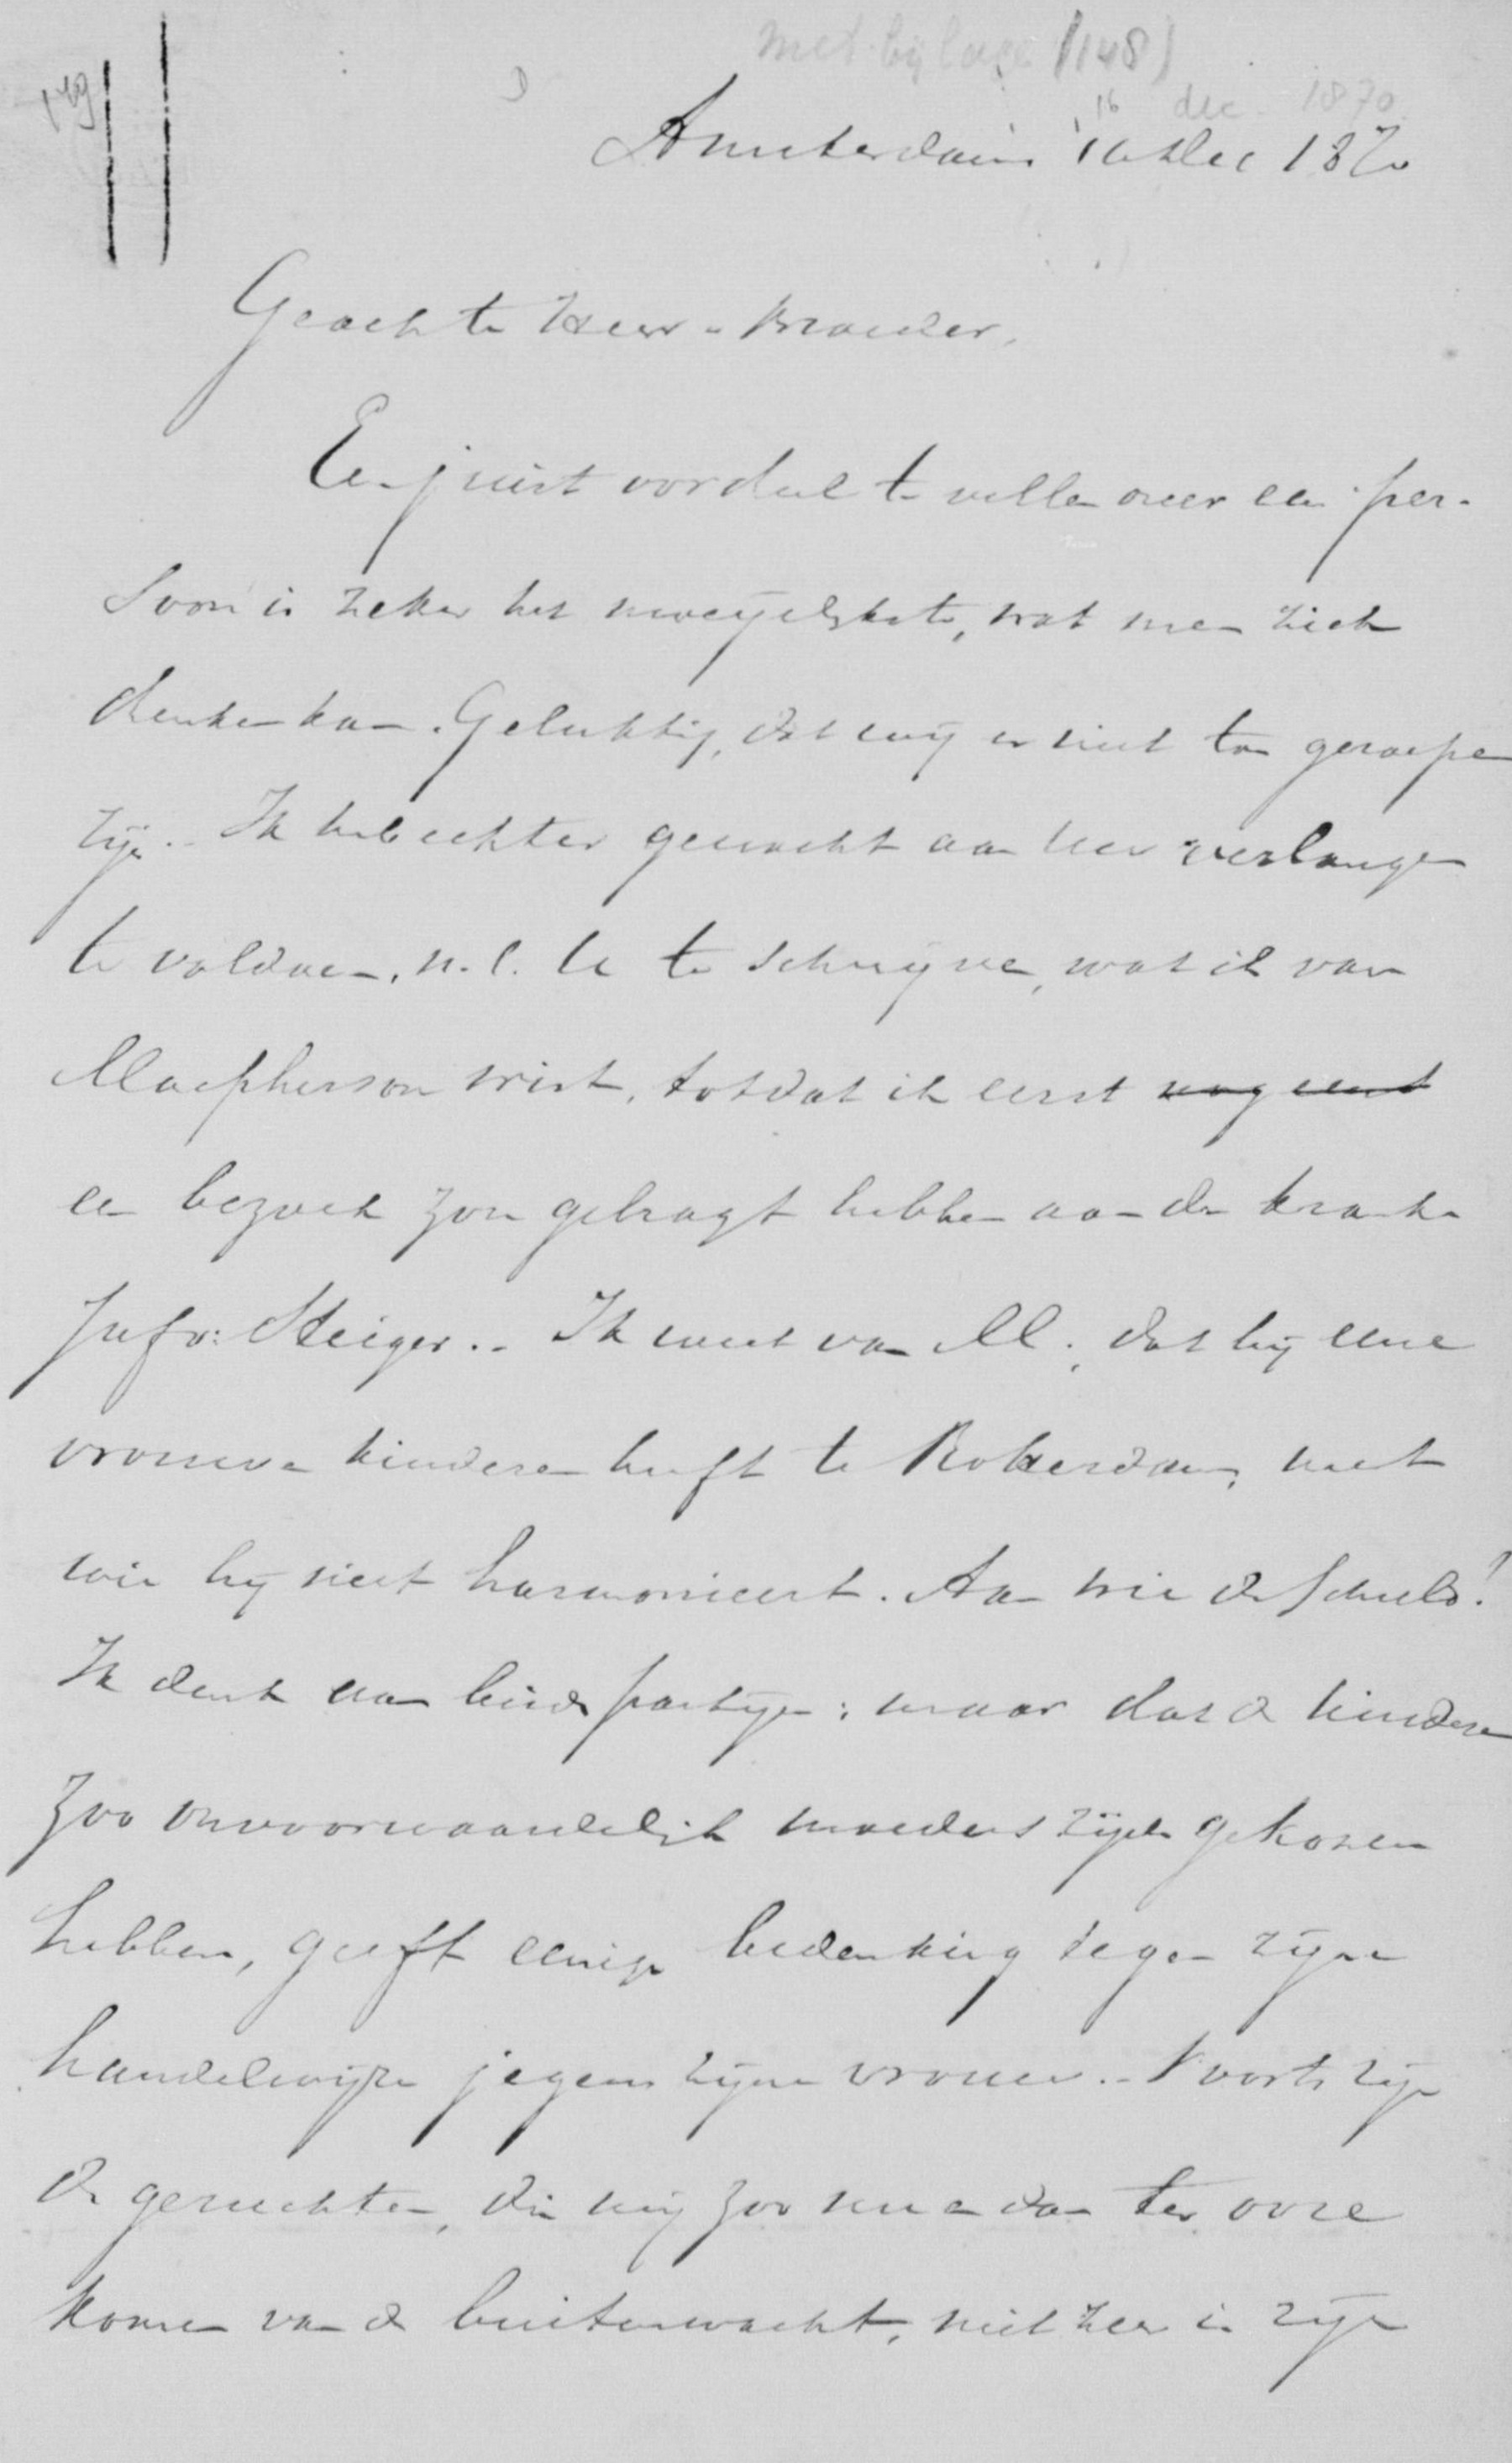 met bijlage (148)
149
16 dec. 1870
Amsterdam 16 Dec 1870
Geachte Heer & Broeder,
Een juist oordeel te vellen over een per-
soon is zeker het moeyelijkste, wat men zich
denken kan. Gelukkig, dat wij er niet toe geroepen
zijn. Ik heb echter gewacht aan Uw verlangen
te voldoen, n.l. U te schrijven, wat ik van
Macpherson wist, totdat ik eerst nog eens
een bezoek zou gebragt hebben aan de kranke
Jufv: Steiger. Ik weet van M. dat hij eene
vrouw en kinderen heeft te Rotterdam, met
wie hij niet harmonieert. Aan wie de schuld?
Ik denk aan beide partijen; maar dat de kinderen
zoo onvoorwaardelijk moeders zijde gekozen
hebben, geeft eenige bedenking tegen zijne
handelwijze jegens zijne vrouw. Voorts zijn
de geruchten, die mij zoo nu en dan ter oore
komen van de buitenwacht, niet zeer in zijn